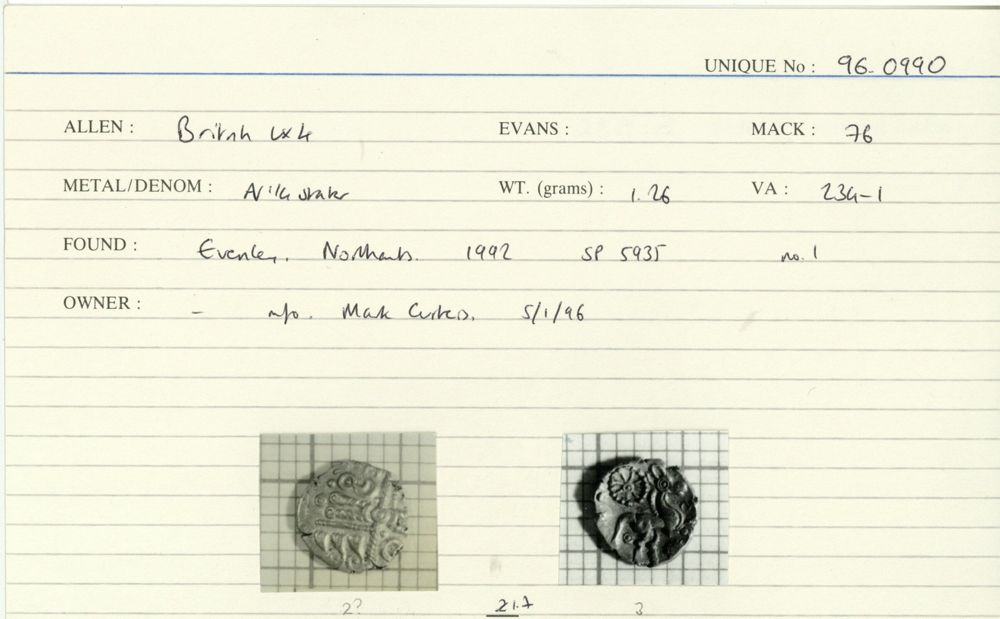 UNIQUE No : 96-0990
ALLEN : British Lx4 EVANS : MACK : 76
METAL/DENOM : WT. (grams) : 1.26 VA : 234-1
FOUND : Evenley, Northants. 1992 SP 5935 no. 1
OWNER : - Mark Curteis. 5/1/96
2? 21.7 3